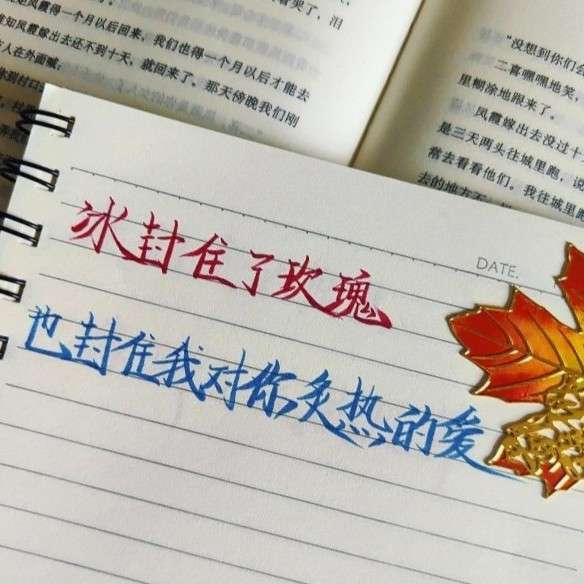 是凤霞得一个月以后回来，我们也得一个月以后才能去
凤霞嫁出去还不到十天，就回来了。那天傍晚我们刚
人在外面喊
"没想到你们
二喜嘿嘿地笑，
里糊涂地跟来了。
凤霞嫁出去没过十
是三天两头往城里跑，说
常去看看他们。我往城里跑
去的地方
DATE.
冰封住了玫瑰
也封住我对你炙热的爱